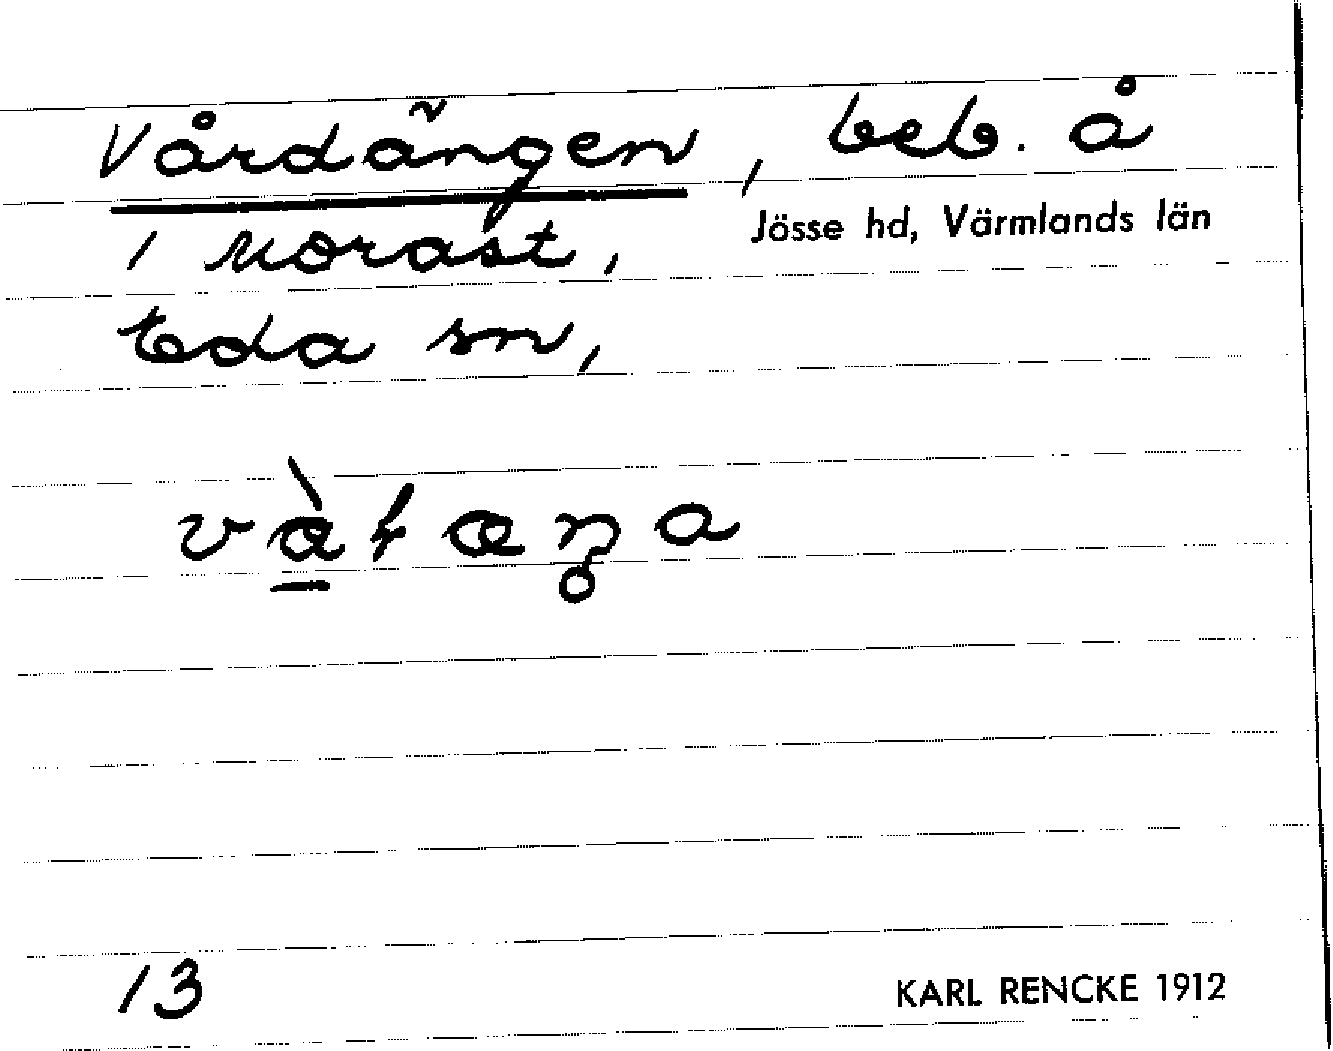 Vårdängen, beb. å
1 Morast, Jösse hd, Värmlands län
Eda sn,
13
KARL RENCKE 1912